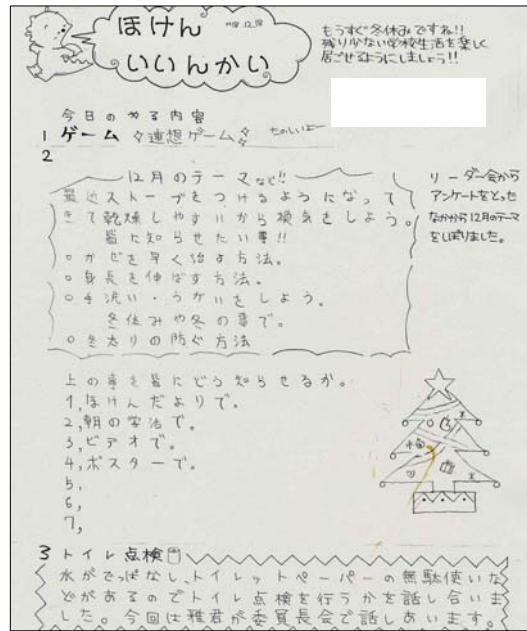 ほけん
いいんかい
H18.12.18
もうすぐ冬休みですね!!
残り少ない学校生活を楽しく
居ごせるようにしましょう!!
今日のやる内容
1 ゲーム ☆連想ゲーム☆ たのしいよー
2
12月のテーマなど!!
最近ストーブをつけるようになって
きて乾燥しやすいから換気をしよう。
皆に知らせたい事!!
○かぜを早く治す方法。
○身長を伸ばす方法。
○手洗い・うがいをしよう。
冬休みや冬の事で。
○冬太りの防ぐ方法
リーダー会から
アンケートをとった
なかから12月のテーマ
をしぼりました。
上の事を皆にどう知らせるか。
1,ほけんだよりで。
2,朝の学活で。
3,ビデオで。
4,ポスターで。
5,
6,
7,
3 トイレ点検
水がでっぱなし、トイレットペーパーの無駄使いな
どがあるのでトイレ点検を行うかを話し合いま
した。今回は雅君が委員長会で話しあいます。